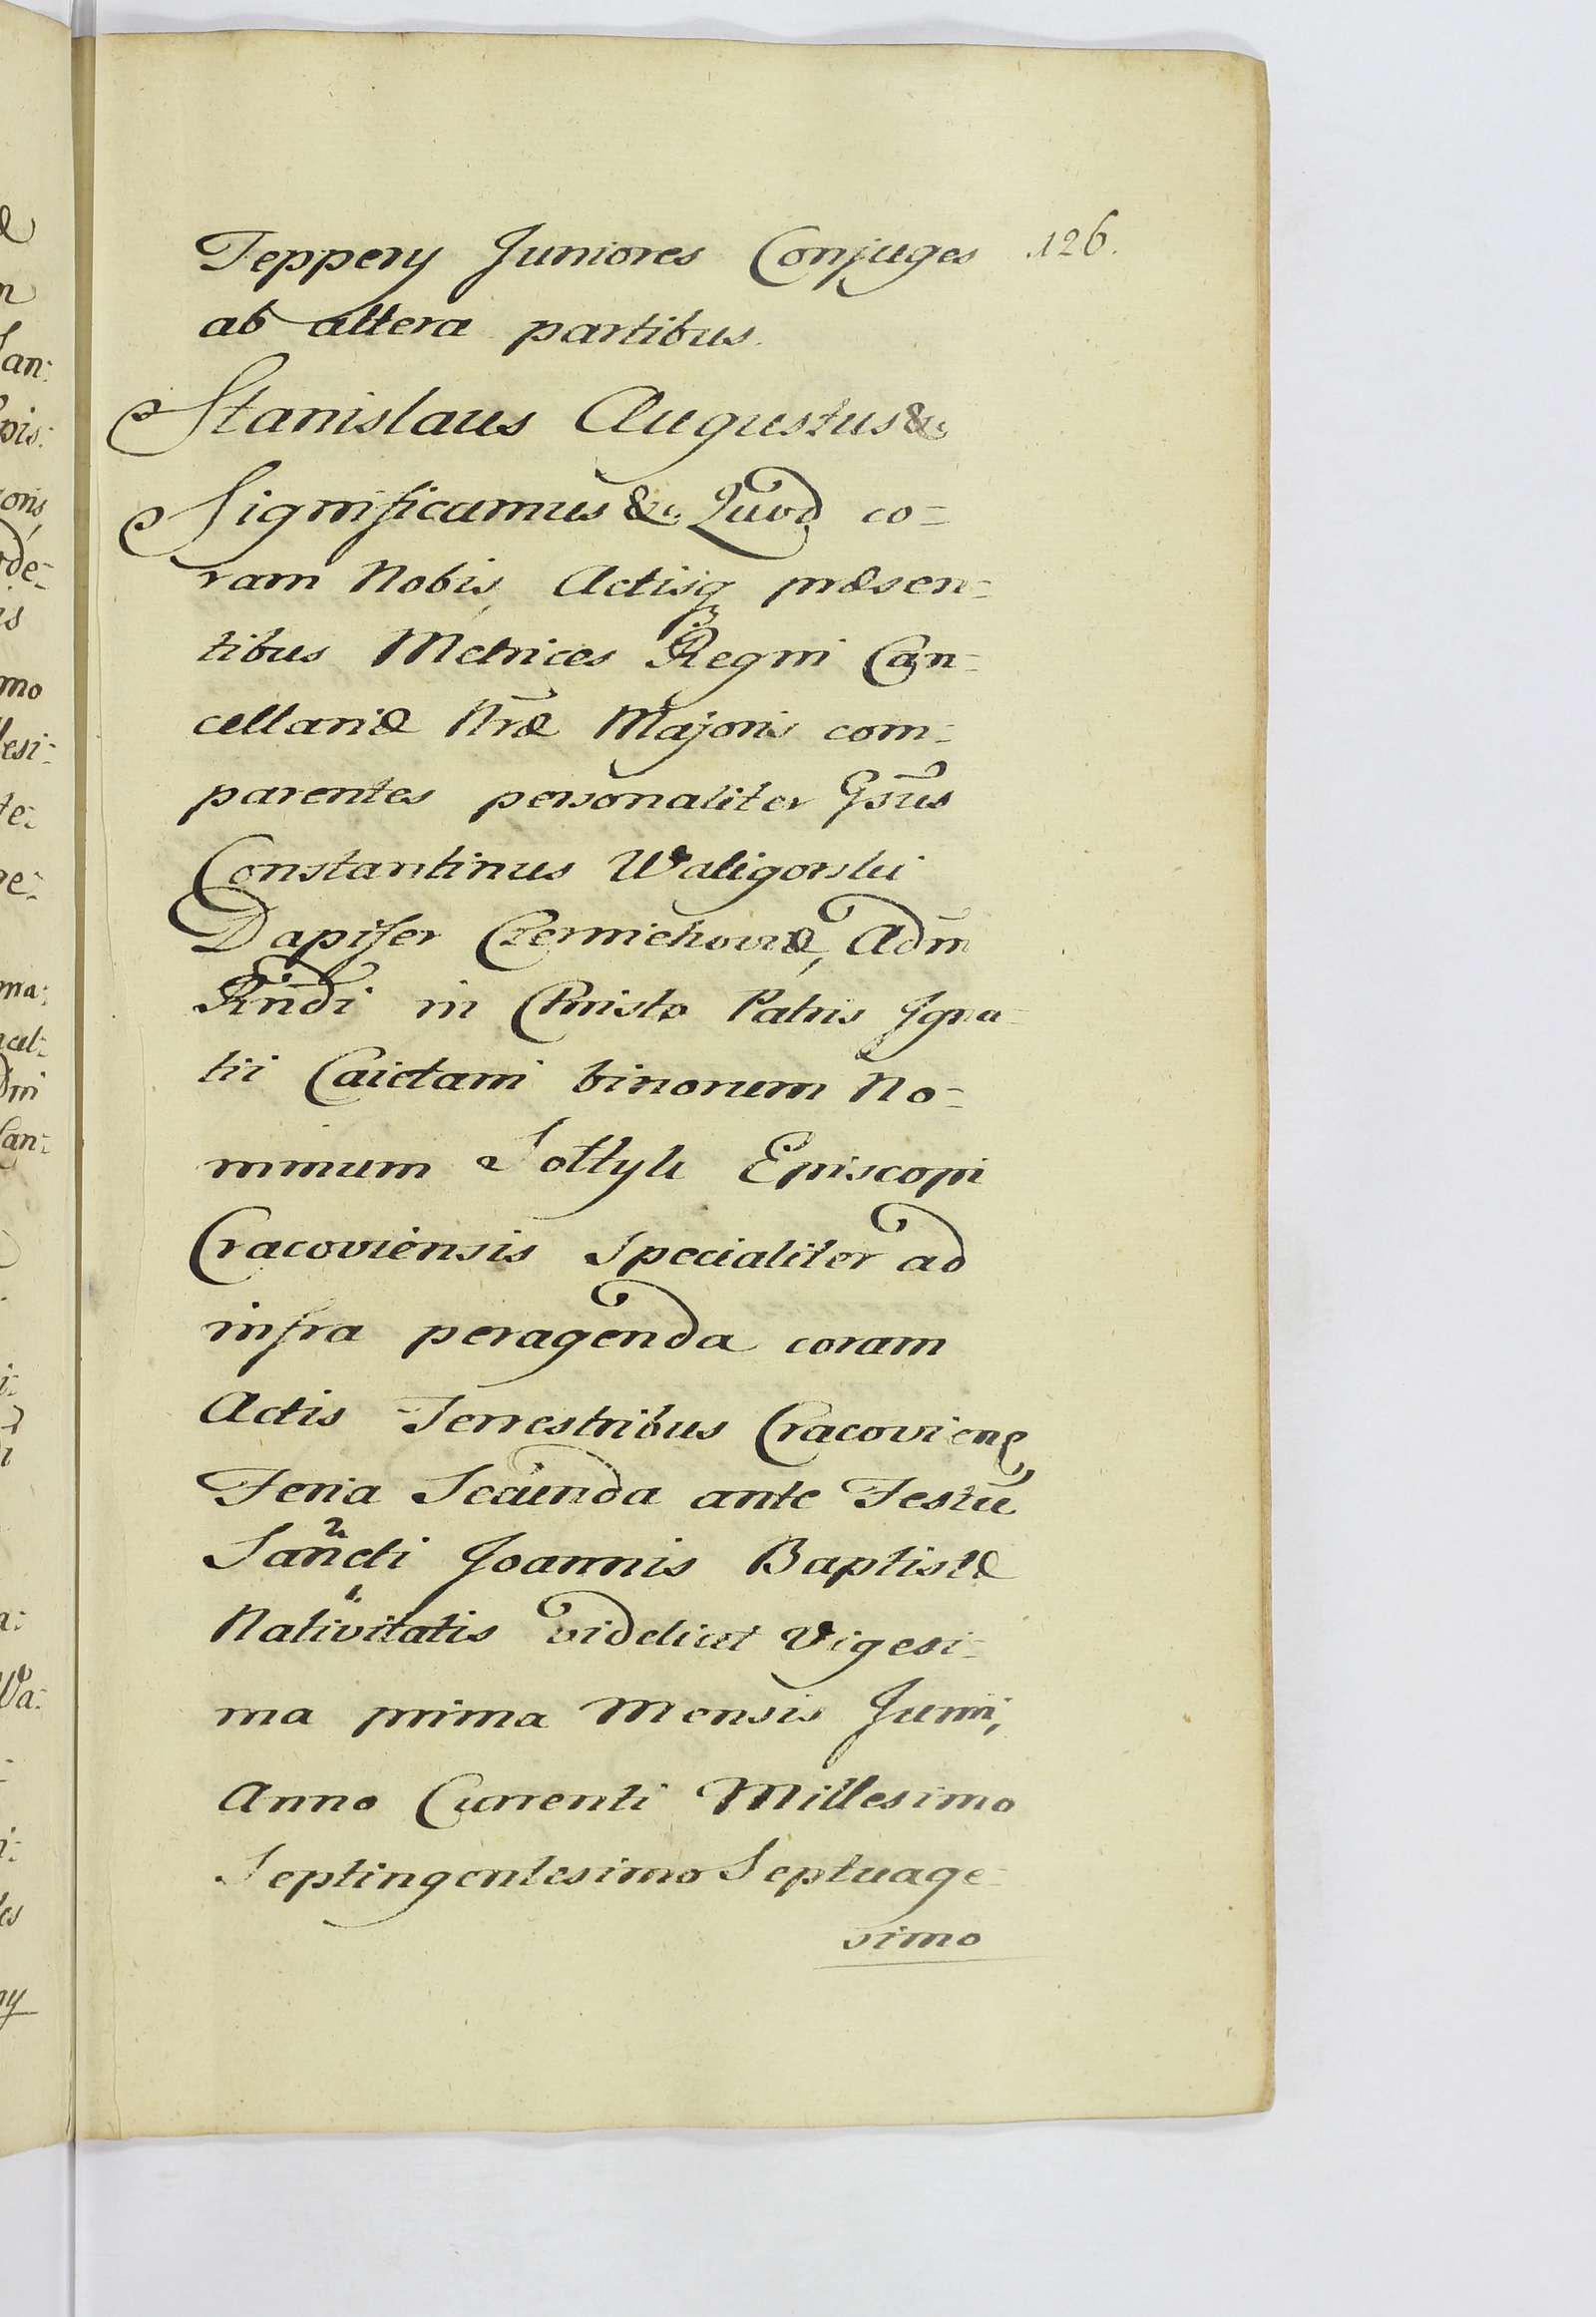 126.
Teppery Juniores Conjuges
ab altera partibus.
Stanislaus Augustus &c
Significamus &c. Quod co=
ram Nobis, Actisq₃ præsen=
tibus Metrices Regni Can=
cellariæ Nr̃æ Majoris com=
parentes personaliter Gs̃us
Constantinus Waligorski
Dapifer Czerniehoviæ, Adm̃
Rñdi in Christo Patris Igna=
tii Caietani binorum No=
minum Sołtyk Episcopi
Cracoviensis Specialiter ad
infra peragenda coram
Actis Terrestribus Cracovien̄
Feria Secunda ante Festũ
Sancti Joannis Baptistæ
Nativitatis videlicet Vigesi=
ma prima Mensis Junii,
Anno Currenti Millesimo
Septingentesimo Septuage=
simo